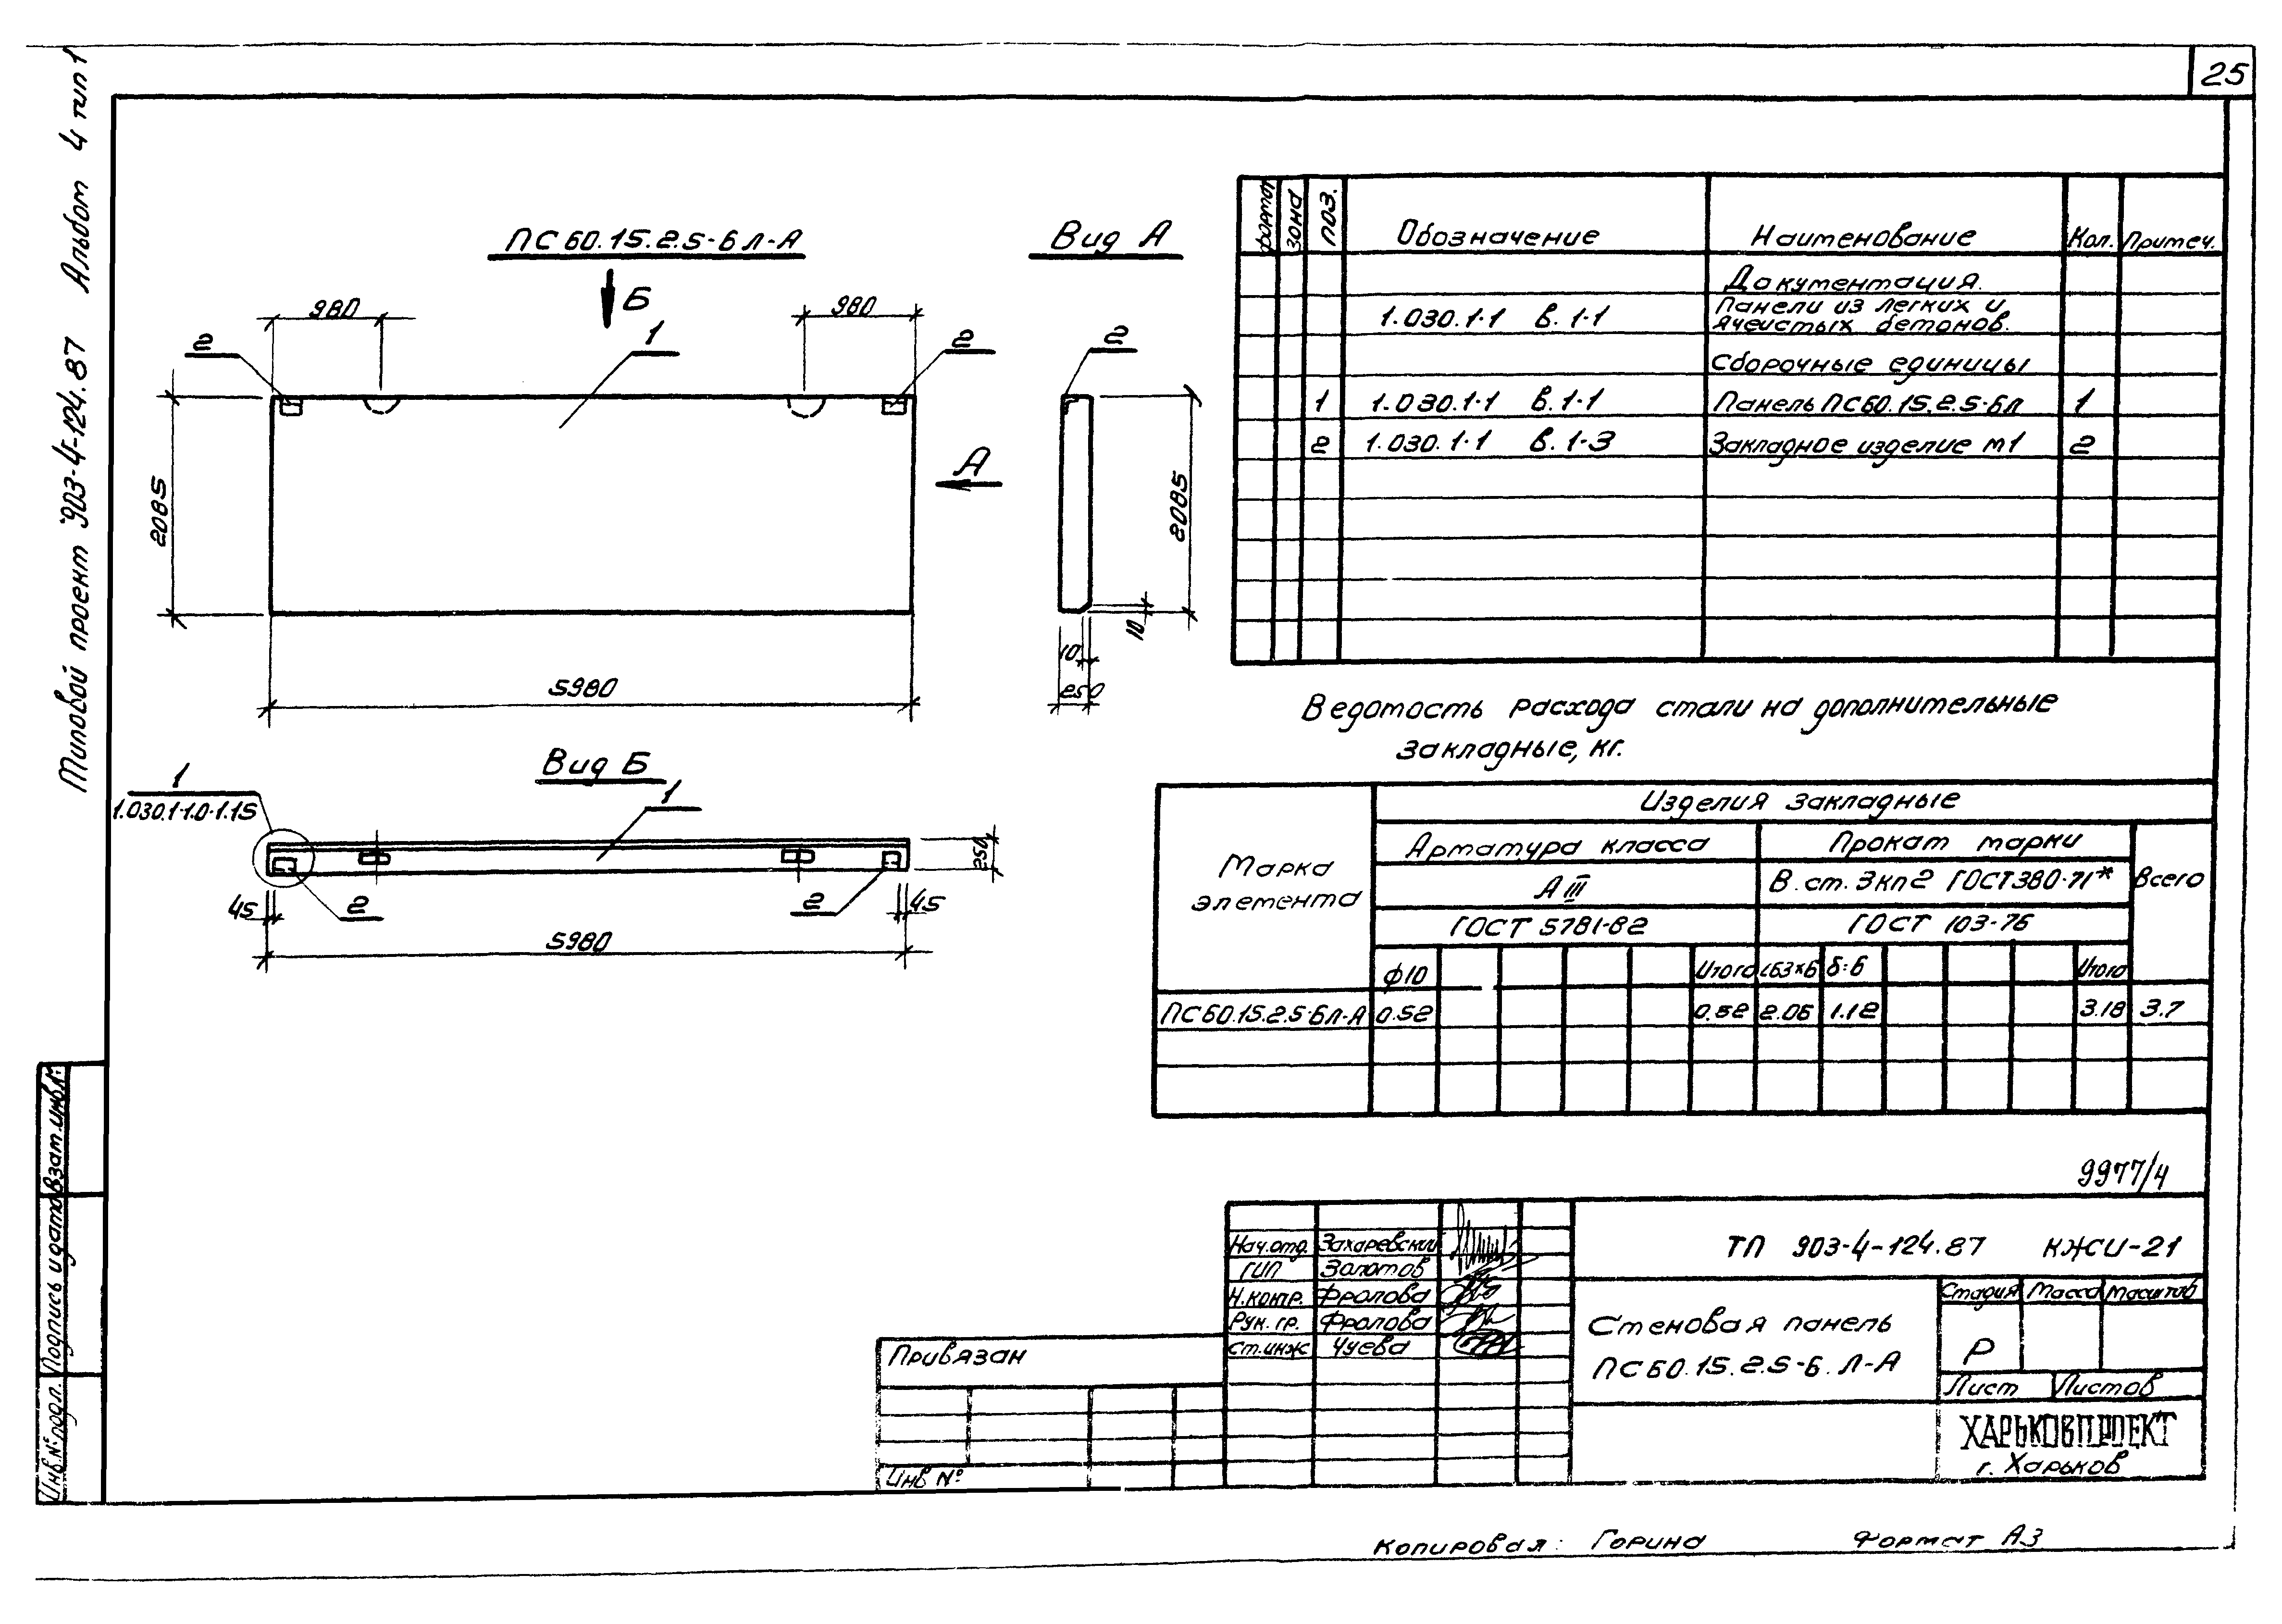 25
Типовой проект 903-4-124.87 Альбом 4 тип 1
ПС60.15.2.5-6Л-А
Вид А
Б
980
980
2
1
2
2
А
2085
2085
10
10
250
5980
Вид Б
1
1.030.1-1.0-1.15
1
250
45
2
2
45
5980
Формат
Зона
Поз.
Обозначение
Наименование
Кол.
Примеч.
Документация.
1.030.1-1 В.1-1
Панели из легких и
ячеистых бетонов.
Сборочные единицы
1 1.030.1-1 В.1-1 Панель ПС60.15.2.5-6Л 1
2 1.030.1-1 В.1-3 Закладное изделие М1 2
Ведомость расхода стали на дополнительные
закладные, кг.
Марка
элемента
Изделия закладные
Арматура класса
Прокат марки
Всего
А III
В.ст.3кп2 ГОСТ380-71*
ГОСТ 5781-82
ГОСТ 103-76
ф10
Итого
L63х6
δ=6
Итого
ПС60.15.2.5-6Л-А 0.52 0.52 2.06 1.12 3.18 3.7
9977/4
Нач.отд. Захаревский
ГИП Золотов
Н.контр. Фролова
Рук.гр. Фролова
Ст.инж Чуева
ТП 903-4-124.87 КЖСИ-21
Стеновая панель
ПС60.15.2.5-6.Л-А
Стадия Масса Масштаб
Р
Лист Листов
ХАРЬКОВПРОЕКТ
г. Харьков
Привязан
Инв №
Взам.инв.№
Подпись и дата
Инв.№ подл.
Копировал: Горина Формат А3